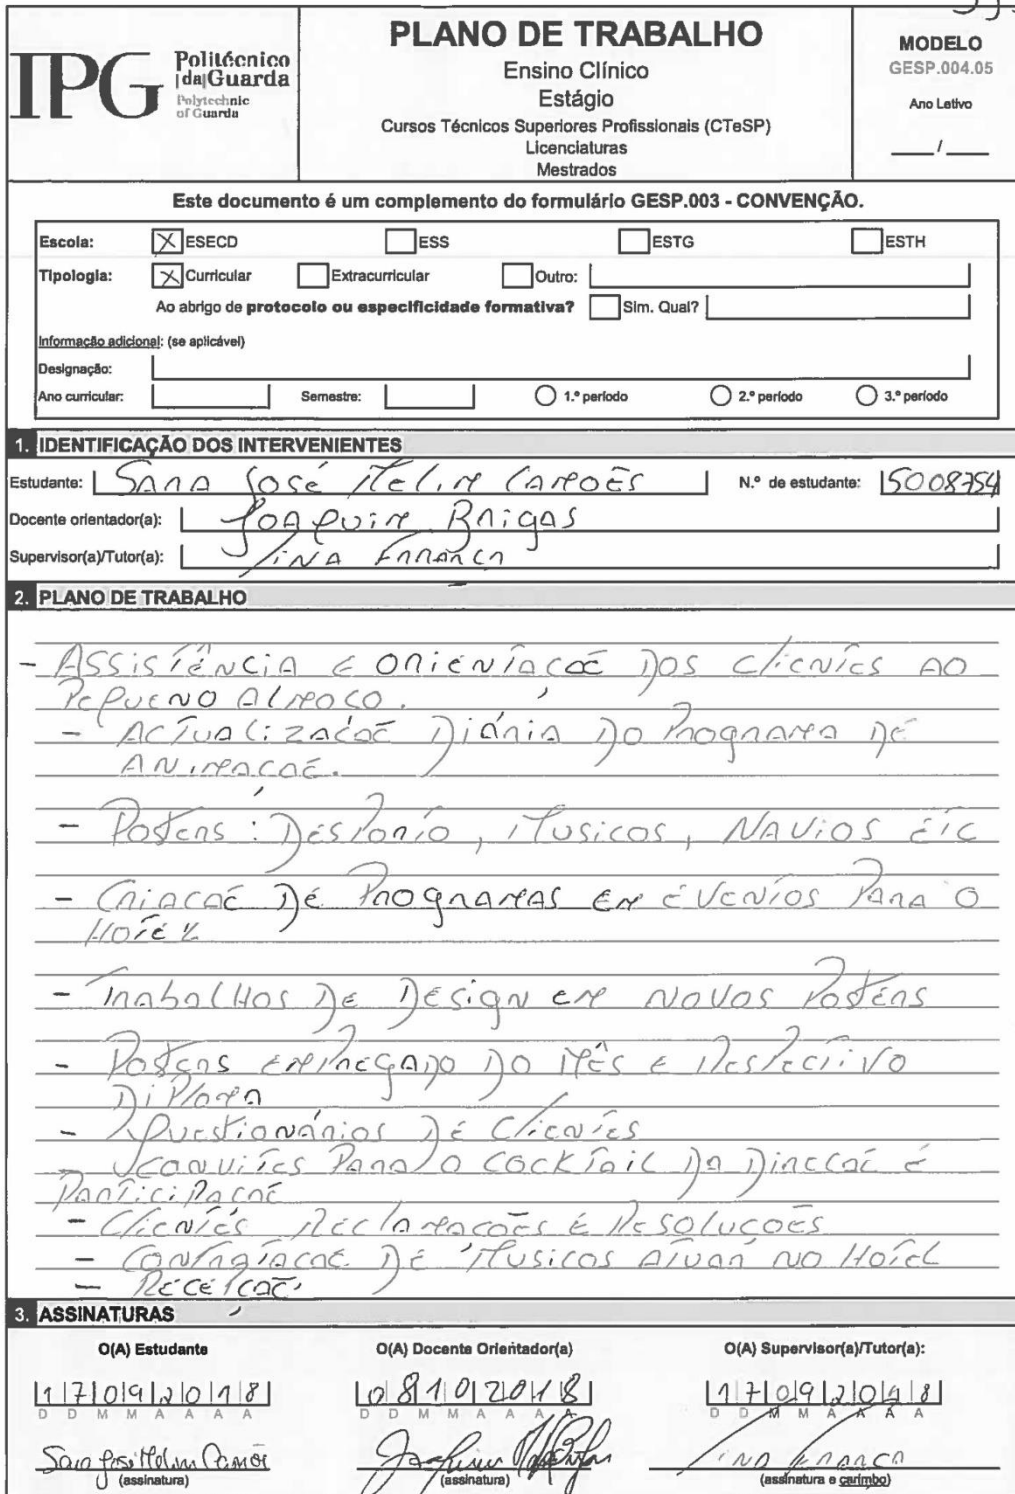 IPG Politécnico
|da|Guarda
Polytechnic
of Guarda
PLANO DE TRABALHO
Ensino Clínico
Estágio
Cursos Técnicos Superiores Profissionais (CTeSP)
Licenciaturas
Mestrados
MODELO
GESP.004.05
Ano Letivo
___/___
Este documento é um complemento do formulário GESP.003 - CONVENÇÃO.
Escola: X ESECD ESS ESTG ESTH
Tipologia: X Curricular Extracurricular Outro:
Ao abrigo de protocolo ou especificidade formativa? Sim. Qual?
Informação adicional: (se aplicável)
Designação:
Ano curricular: Semestre: 1.º período 2.º período 3.º período
1. IDENTIFICAÇÃO DOS INTERVENIENTES
Estudante: Sara José Melim Camoẽs N.º de estudante: 5008754
Docente orientador(a): Joaquim Brigas
Supervisor(a)/Tutor(a): Tina Franca
2. PLANO DE TRABALHO
- Assistência e orientação dos clientes ao
Pequeno Almoço.
- Actualização Diária do Programa de
Animação.
- Posters: Desporto, Musicos, Navios etc
- Criação de Programas em eventos Para o
Hotel
- Trabalhos de Design em novos Posters
- Posters empregado do Mês e respectivo
Diploma
- Questionários de Clientes
- Convites Para o Cocktail da Direcção e
Participação
- Clientes reclamações e Resoluções
- Contratação de Musicos atuar no Hotel
- Receção
3. ASSINATURAS
O(A) Estudante O(A) Docente Orientador(a) O(A) Supervisor(a)/Tutor(a):
17092018 08102018 17092018
D D M M A A A A D D M M A A A A D D M M A A A A
Sara José Melim Camões Tina Franca
(assinatura) (assinatura) (assinatura e carimbo)